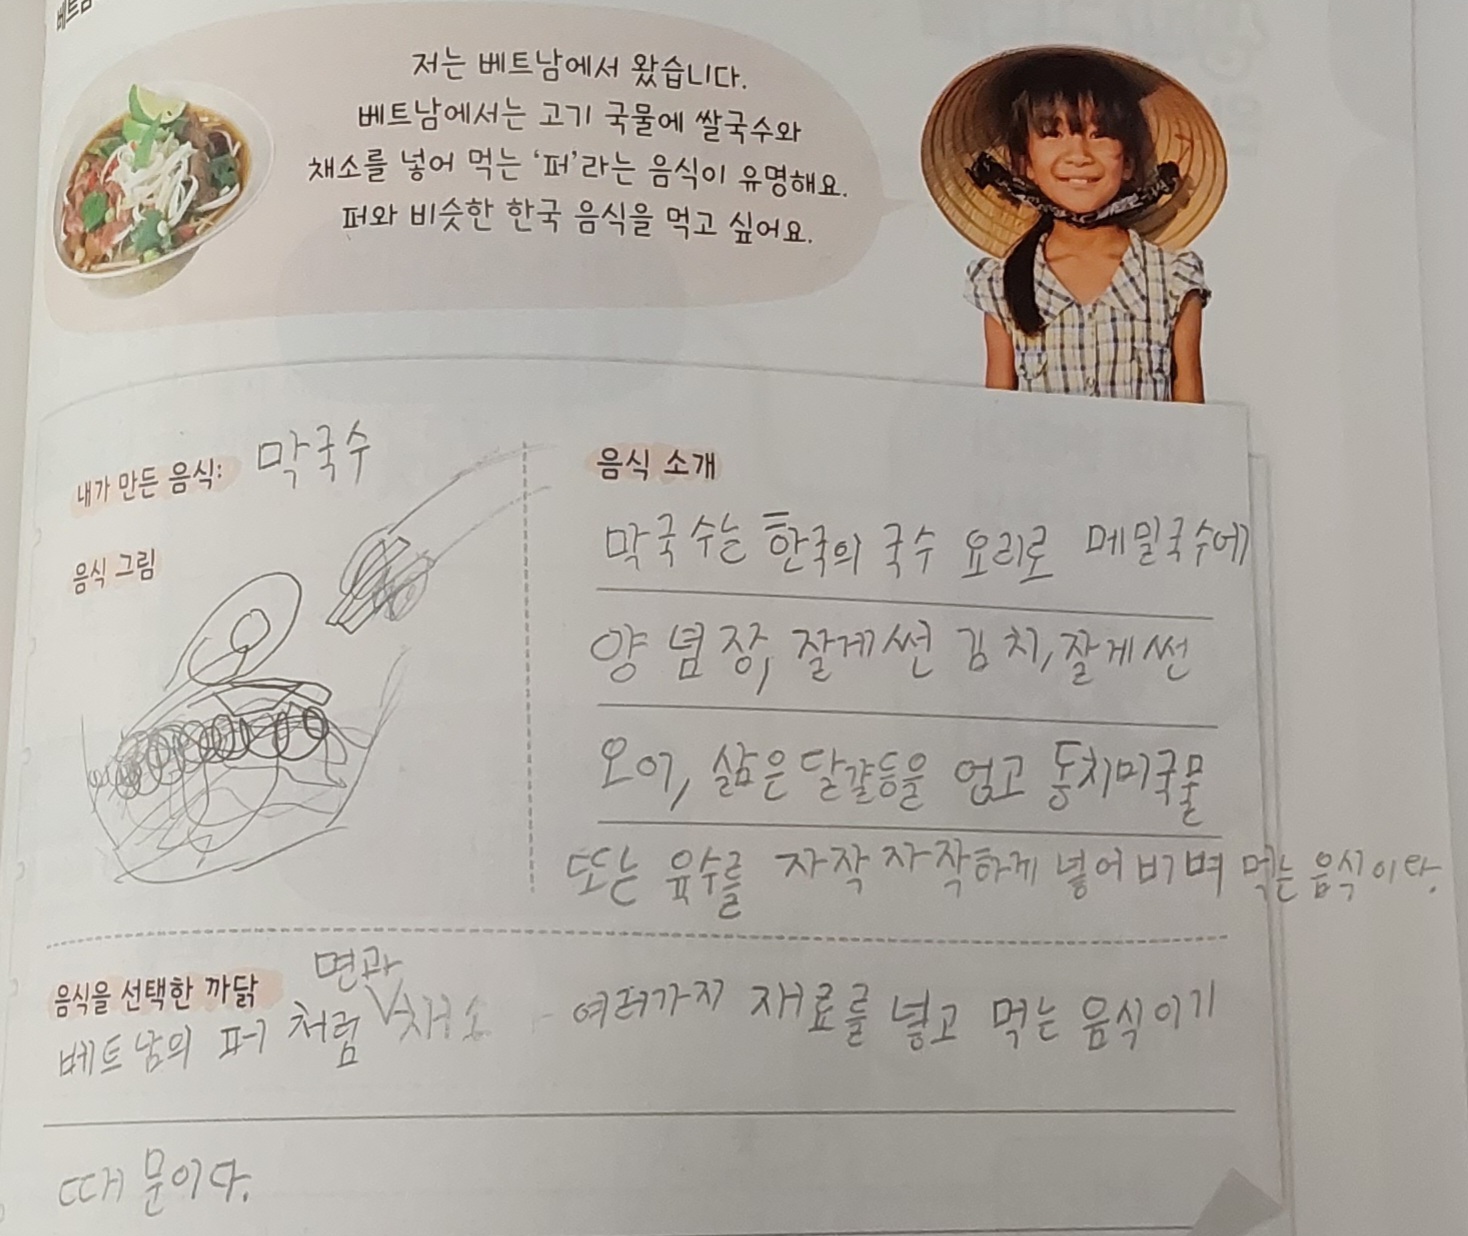 베트남
저는 베트남에서 왔습니다.
베트남에서는 고기 국물에 쌀국수와
채소를 넣어 먹는 ‘퍼’라는 음식이 유명해요.
퍼와 비슷한 한국 음식을 먹고 싶어요.
내가 만든 음식: 막국수
음식 그림
음식 소개
막국수는 한국의 국수 요리로 메밀국수에
양념장, 잘게썬 김치, 잘게썬
오이, 삶은 달걀등을 얹고 동치미국물
또는 육수를 자작자작하게 넣어 비벼 먹는 음식이다.
음식을 선택한 까닭
면과
베트남의 퍼 처럼 채소 여러가지 재료를 넣고 먹는 음식이기
때문이다.